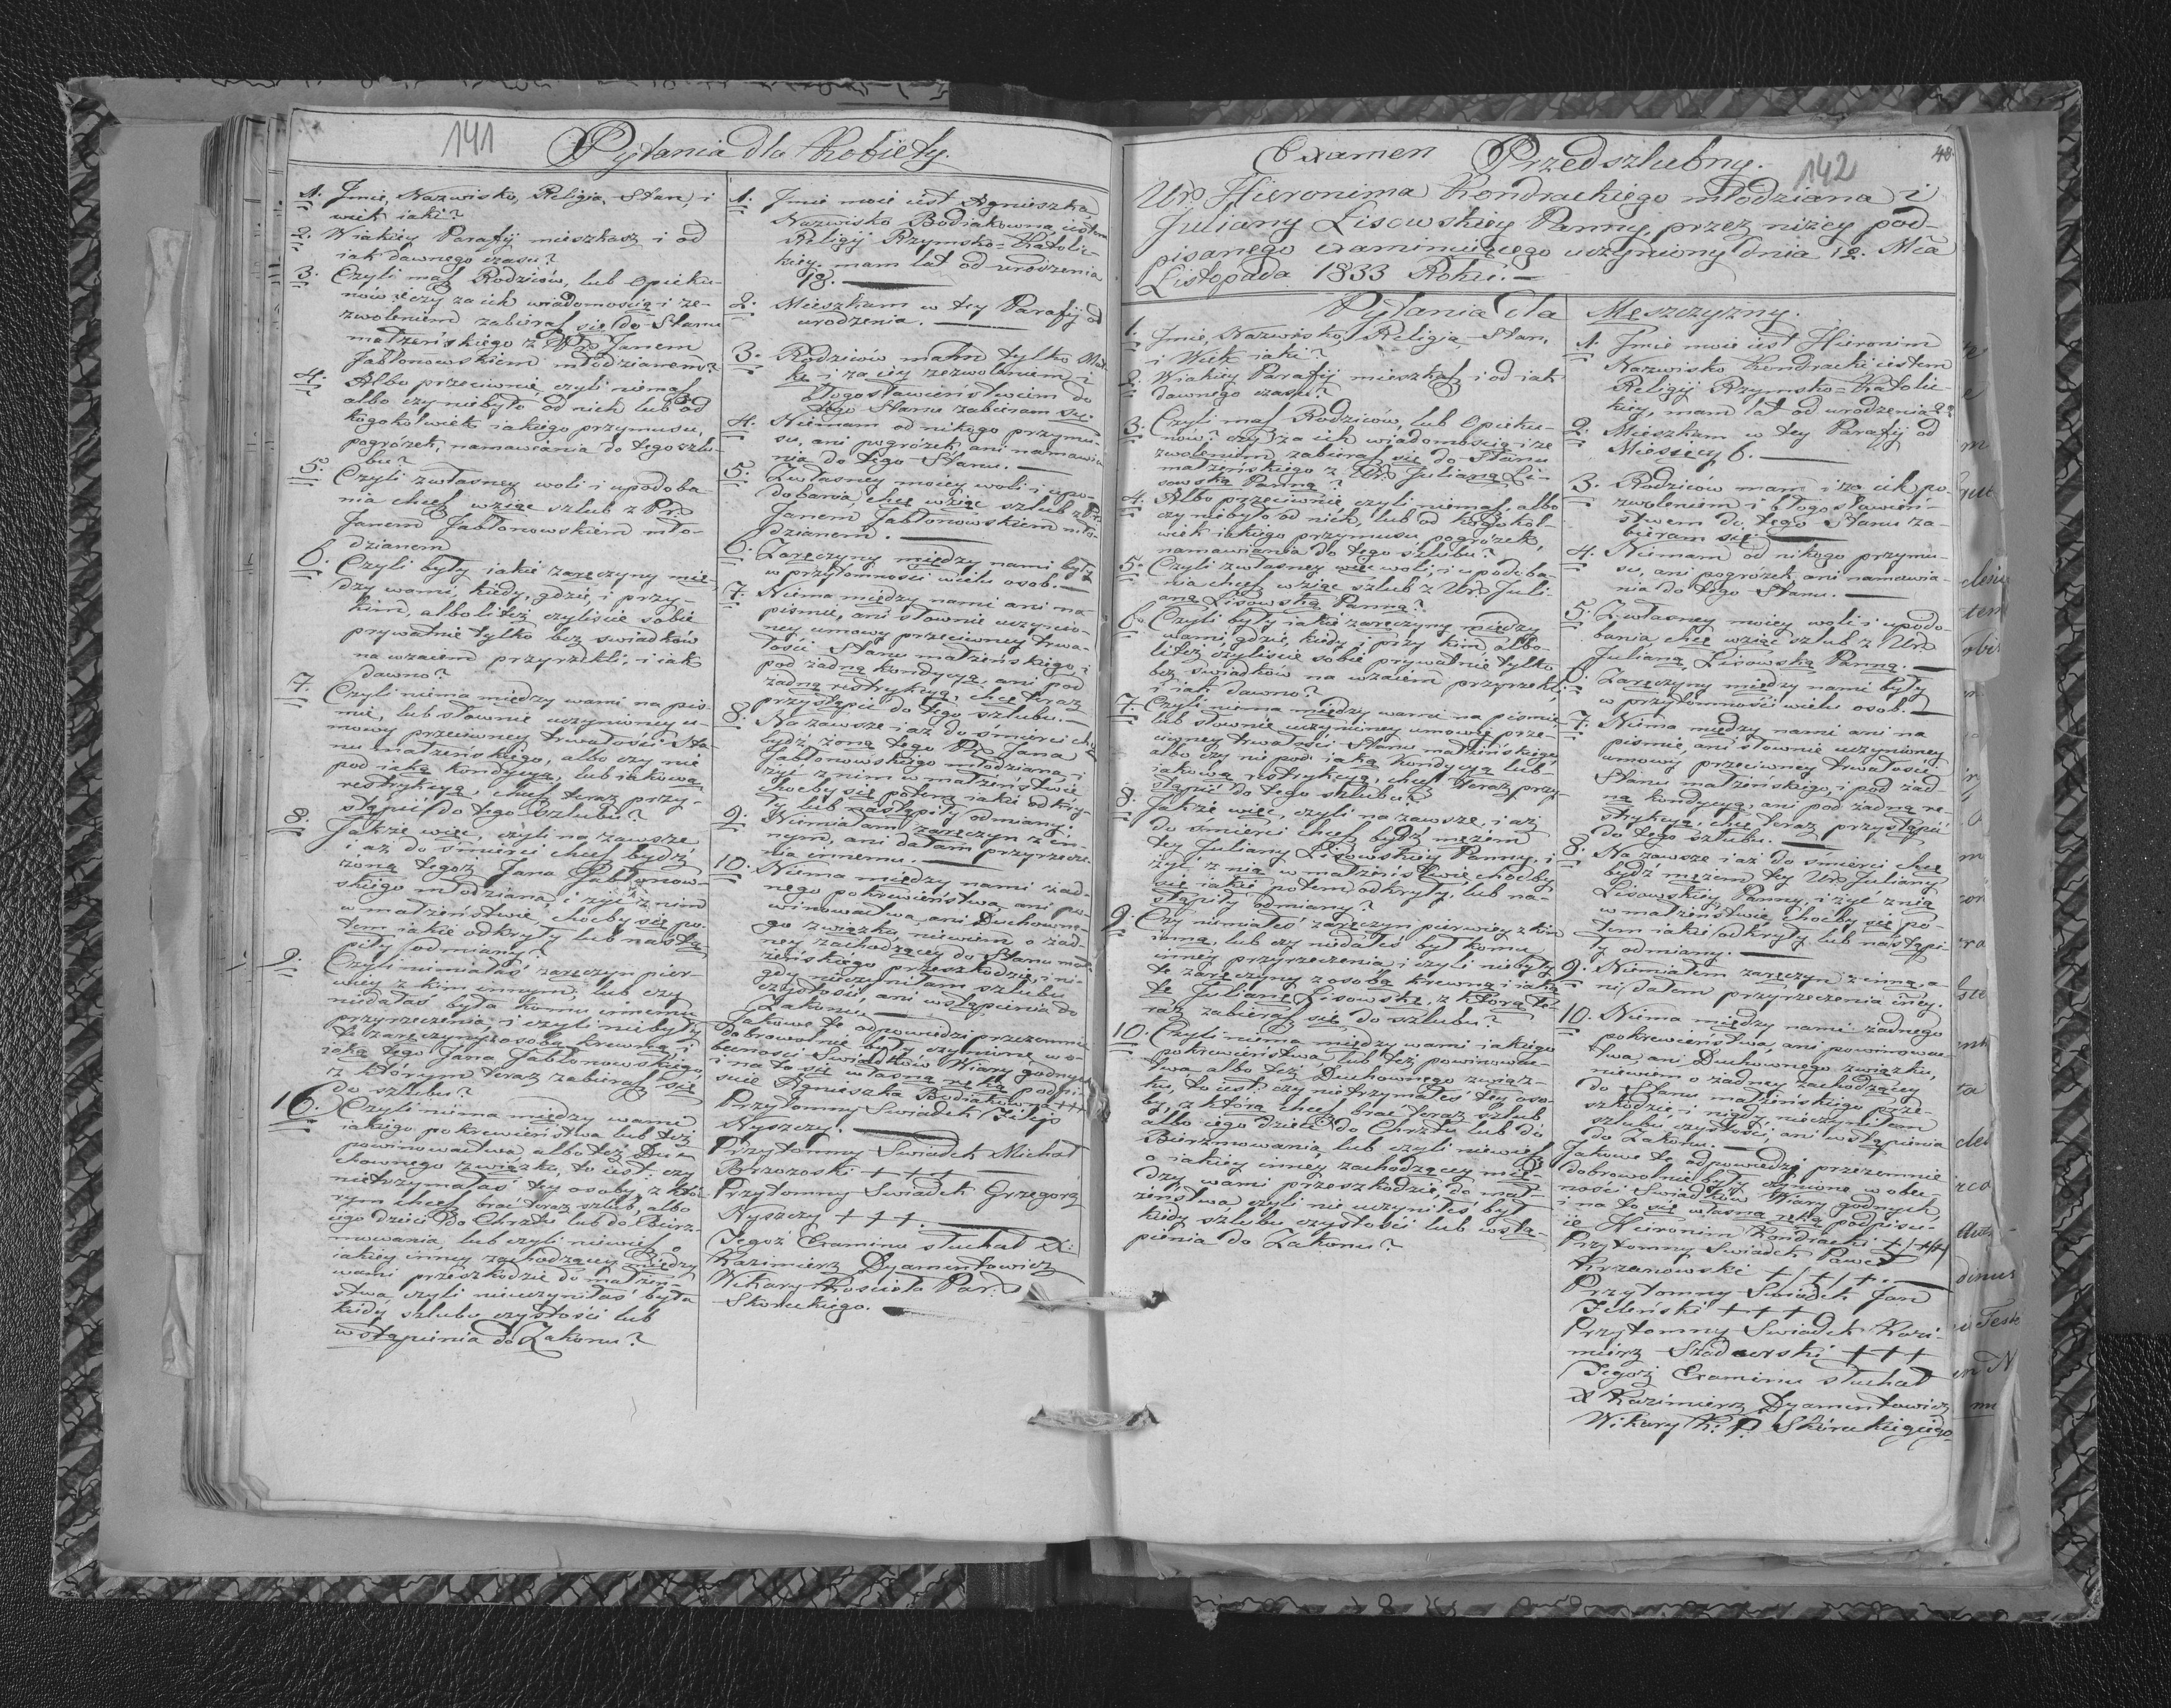 141
Pytania dla Kobiety.
1. Jmie, Nazwisko, Religia, Stan, i
wiek iaki?
2. Wiakiey Parafij mieszkasz i od
iak dawnego czasu?
3. Czyli masz Rodziców, lub Opieku-
nów i czy za ich wiadomością i ze-
zwoleniem zabierasz się do Stanu
małżeńskiego z Janem
Jabłonowskiem młodzianem?
4. Albo przeciwnie czyli niemasz
albo czy niebyło od nich lub od
kogokolwiek iakiego przymusu,
pogróżek, namawiania do tego szlu-
bu?
5. Czyli zwłasney woli i upodoba
nia chcesz wziąc szlub z
Janem Jabłonowskiem mło-
dzianem
6. Czyli były iakie zaręczyny mię
dzy wami, kiedy, gdzie, i przy-
kim, albo li też czyliście sobie
prywatnie tylko bez swiadków
na wzaiem przyrzekli, i iak
dawno?
7. Czyli niema między wami na piś-
mie, lub słownie uczynioney u-
mowy przeciwney trwałości Sta-
nu małżeńskiego, albo czy nie
pod iaką kondycyą, lub iakową
restrykcyą, chcesz teraz przy-
stąpić do tego szlubu?
8. Jakże więc, czyli na zawsze
i aż do śmierci chcesz bydź
żoną tegoż Jana Jabłonow-
skiego młodziana, i żyć z nim
w małżeństwie, choćby się po-
tem iakie odkryły lub nastą
piły odmiany?
9. Czyli niemiałaś zaręczyn pier-
wiey z kim innym, lub czy
niedałaś była komu innemu
przyrzeczenia, i czyli niebyły
te zaręczyny z osobą krewną i
iaką tego Jana Jabłonowskiego,
z którym teraz zabierasz się
do szlubu?
10. Czyli niema między wami
iakiego pokrewieństwa lub też
powinowactwa, albo też Du
chownego związku, to iest czy
nietrzymałaś tey osoby, z któ-
rym chcesz brać teraz szlub, albo
iego dzieci do Chrztu lub do Bierz-
mowania, lub czyli niewiesz o
iakiey inney zachodzącey między
wami przeszkodzie do małżeń-
stwa, czyli nieuczyniłaś była
kiedy szlubu czystości lub
wstąpienia do Zakonu?
1. Jmie moie iest Agnieszka
Nazwisko Bodiakowna, iestem
Religij Rzymsko-Katolic-
kiey, mam lat od urodzenia
18.
2. Mieszkam w tey Parafij od
urodzenia.
3. Rodziców mam tylko Mat-
kę i za iey zezwoleniem i
błogosławieństwem do
tego Stanu zabieram się
4. Niemam od nikogo przymu-
su, ani pogróżek, ani namawia
nia do tego Stanu.
5. Zwłasney moiey woli i upo-
dobania, chcę wziąc szlub z
Janem Jabłonowskiem mło-
dzianem.
6. Zaręczyny między nami były
w przytomności wielu osob.
7. Niema między nami ani na
pismie, ani słownie uczynio-
ney umowy przeciwney trwa-
łości Stanu małżeńskiego, i
pod żadną kondycyą, ani pod
żadną restrykcyą, chcę teraz
przystąpić do tego szlubu.
8. Na zawsze i aż do śmierci chcę
bydź żoną tego Jana
Jabłonowskiego młodziana, i
żyć z nim w małżeństwie
choćby się potem iakie odkry-
ły lub nastąpiły odmiany.
9. Niemiałam zaręczyn z in-
nym, ani dałam przyrzecze-
nia innemu.
10. Niema między nami żad-
nego pokrewieństwa, ani po-
winowactwa, ani Duchowne-
go związku, niewiem o żad-
ney zachodzącey do Stanu mał-
żeńskiego przeszkodzie, i ni-
gdy nieczyniłam szlubu
czystości, ani wstąpienia do
Zakonu.
Jakowe te odpowiedzi przezemnie
dobrowolnie były czynione w o-
becności Swiadków Wiary godnych
i na to się własną ręką podpi-
suie Agnieszka Bodiakowna +++
Przytomny Swiadek Filip
Nyszczy.
Przytomny Swiadek Michał
Brzozoski +++
Przytomny Swiadek Grzegorz
Nyszczy +++.
Tegoż Examinu słuchał X:
Kazimierz Dyamentowicz
Wikary Kościoła Par:
Skoruckiego.
142
48.
Examen Przedszlubny.
Ur. Hieronima Kondrackiego młodziana i
Juliany Lisowskiey Panny, przez niżey pod-
pisanego examinuiącego uczyniony dnia Mca
Listopada 1833 Roku.
Pytania dla Męszczyzny.
1. Jmie, Nazwisko, Religia Stan,
i Wiek iaki?
2. Wiakiey Parafij mieszkasz i od iak
dawnego czasu?
3. Czyli masz Rodziców, lub Opieku-
nów? czy za ich wiadomością i ze
zwoleniem zabierasz się do Stanu
małżeńskiego z Ur. Julianą Li-
sowską Panną?
4. Albo przeciwnie czyli niemasz, albo
czy niebyło od nich, lub od kogokol-
wiek iakiego przymusu pogróżek,
namawiania do tego szlubu?
5. Czyli zwłasney więc woli, i upodoba-
nia chcesz wziąc szlub z Ur. Juli
aną Lisowską Panną?
6. Czyli były iakie zaręczyny między
wami gdzie, kiedy i przy kim, albo-
li też czyliście sobie prywatnie tylko
bez swiadków na wzaiem przyrzekli,
i iak dawno?
7. Czyli niema między wami na pismie,
lub słownie uczynioney umowy prze-
ciwney trwałości Stanu małżeńskiego,
albo czy nie pod iaką kondycyą lub-
iakową restrykcyą, chcesz teraz przy-
stąpić do tego szlubu?
8. Jakże więc, czyli na zawsze, i aż
do śmierci chcesz bydź mężem
tey Juliany Lisowskiey Panny, i
żyć z nią w małżeństwie, choćby
się iakie potem odkryły, lub na-
stąpiły odmiany?
9. Czy niemiałeś zaręczyn pierwiey z kim
inną, lub czy niedałeś był komu
inney przyrzeczenia i czyli niebyły
te zaręczyny z osobą krewną i iaką
tę Julianę Lisowską, z którą te-
raz zabierasz się do szlubu?
10. Czyli niema między wami iakiego
pokrewieństwa lub też powinowac-
twa albo też Duchownego związ-
ku, to iest czy nietrzymałeś tey oso-
by, z którą chcesz brać teraz szlub
albo iego dzieci do Chrztu lub do
Bierzmowania, lub czyli niewiesz
o iakiey inney zachodzącey mię-
dzy wami przeszkodzie, do mał-
żeństwa czyli nie uczyniłeś był
kiedy szlubu czystości lub wstą-
pienia do Zakonu?
1. Jmie moie iest Hieronim
Nazwisko Kondracki iestem
Religij Rzymsko-Katolic-
kiey, mam lat od urodzenia
2. Mieszkam w tey Parafij od
Miesięcy 6.
3. Rodziców mam i za ich po-
zwoleniem i błogosławień-
stwem do tego Stanu za-
bieram się.
4. Niemam od nikogo przymu-
su, ani pogróżek, ani namawia-
nia do tego Stanu.
5. Zwłasney moiey woli i upodo-
bania chcę wziąć szlub z Ur.
Julianą Lisowską Panną.
6. Zaręczyny między nami były
w przytomności wielu osob.
7. Niema między nami ani na
pismie, ani słownie uczynioney
umowy przeciwney trwałości
Stanu małżeńskiego, i pod żad-
ną kondycyą, ani pod żadną re-
strykcyą, chcę teraz przystąpić
do tego szlubu.
8. Na zawsze i aż do śmierci chcę
bydź mężem tey Ur. Juliany
Lisowskiey Panny, i żyć z nią
w małżeństwie, choćby się po-
tem iakie odkryły, lub nastąpi-
ły odmiany.
9. Niemiałem zaręczyn z inną, a-
ni dałem przyrzeczenia iney.
10. Niema między nami żadnego
pokrewieństwa, ani powinowac-
twa, ani Duchownego związku,
niewiem o żadney zachodzącey
do Stanu małżeńskiego prze-
szkodzie, i nigdy nieczyniłam
szlubu czystości, ani wstąpienia
do Zakonu.
Jakowe te odpowiedzi przezemnie
dobrowolnie były czynione w obec-
ności Swiadków Wiary godnych
i na to się własną ręką podpisu-
ię Hieronim Kondracki +++
Przytomny Swiadek Paweł
Krzanowski +++.
Przytomny Swiadek Jan
Zileński +++
Przytomny Swiadek Kazi-
mierz +++
Tegoż Examinu słuchał
X Kazimierz Dyamentowicz
Wikary K: P.